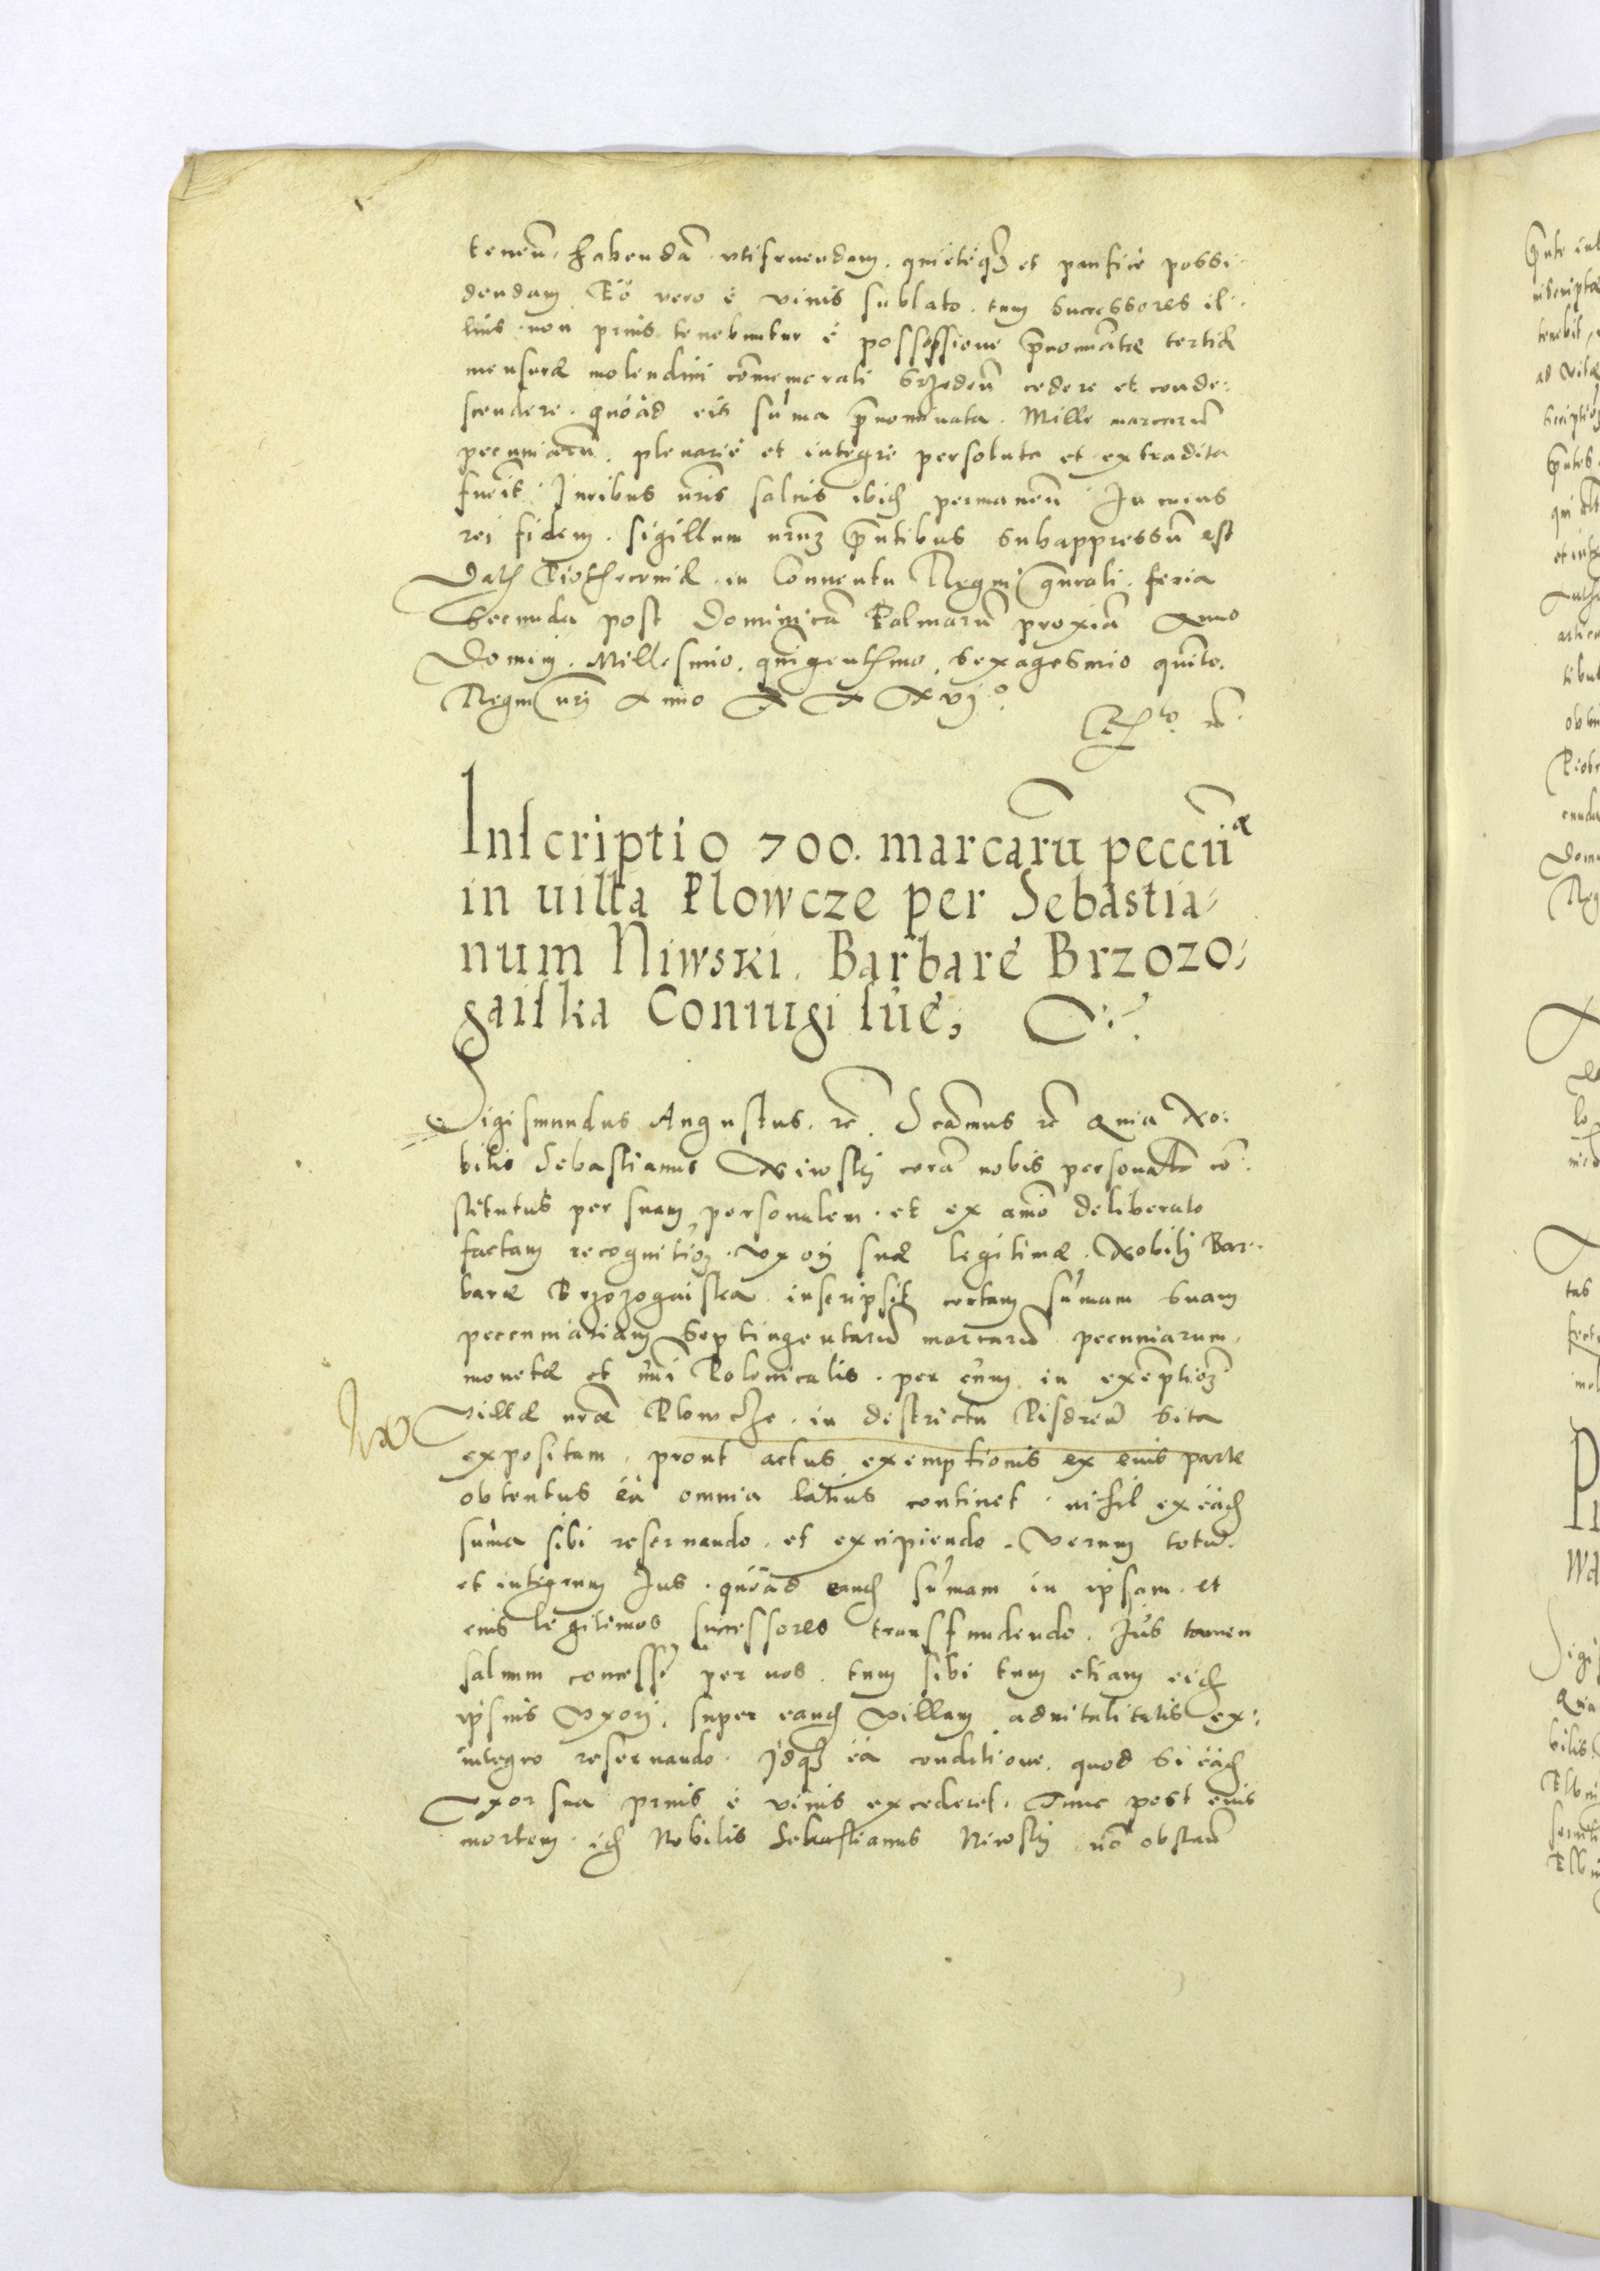 tenen̄. habendā. vtifruendam. quietéq₃ et pacificé possi-
dendam Eó vero é viuis sublato. tum successores il-
lius non prius tenebuntur é possessione p̄nominatæ tertiæ
mensuræ molendini cōmemorati Srzeden̄ cedere et conde-
scendere. quóàd eis sūma p̄nominata. Mille marcarū
pecuniarū. plenarié et integré persoluta et extradita
fuerit. Juribus nr̄is saluis ibid permanen̄ In cuius
rei fidem. sigillum nrūm p̄ntibus subappressū est
Dat Piothrcouiæ. in Conuentu Regni gn̄rali. feria
Secunda post Dominicā Palmarū proximā Anno
Domini. Millesimo. quingentesimo. sexagesimo quinto.
Regni nrī Anno XXXVI°.
Inscriptio 700. marcarū peccūæ
in uilla Plowcze per Sebastia-
num Niwski. Barbaré Brzozo-
gaiska Coniugi sué,
Sigismundus Augustus. rc̄. Significamus rc̄ Quia No-
bilis Sebastianus Niwskj corā nobis personalr̄ cō-
stitutus per suam personalem. et ex aīmo deliberato
factam recognitiōm. vxori suæ legitimæ. Nobilj Bar-
baræ Brzozogaiska. inscripsit certam sūmam suam
pecuniariam Septingentarū marcarū pecuniarum.
monetæ et nūmi Polonicalis. per eūm in exēptiōm
villæ nrǣ Plowcze. in districtu Pisdren̄ sita
expositam. prout actus exemptionis ex eius parte
obtentus éà omnia latius continet. nihil ex eād
sūma sibi reseruando. et excipiendo. Verum totū
et integrum Jus. quóàd eand sūmam in ipsam. et
eius legitimos successores transfundendo. Jus tamen
saluum concessū per nos. tum sibi tum etiam eid
ipsius Vxori. super eand villam aduitalitatis ex-
integro reseruando. Jdq₃ éà conditione. quod Si eād
Vxor sua prius é viuis excederet. Tunc post eius
mortem. id Nobilis Sebastianus Niwskj nō obstan̄